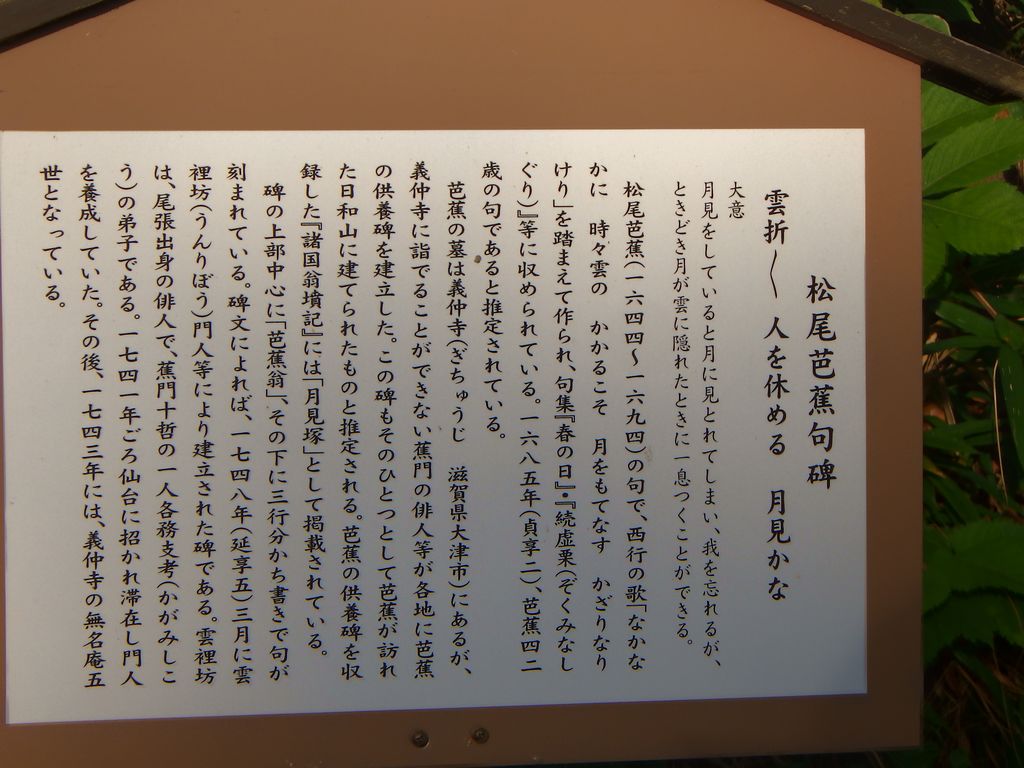 松尾芭蕉句碑
雲折〳〵 人を休める 月見かな
大意
月見をしていると月に見とれてしまい、我を忘れるが、
ときどき月が雲に隠れたときに一息つくことができる。
松尾芭蕉(一六四四～一六九四)の句で、西行の歌「なかな
かに 時々雲の かかるこそ 月をもてなす かざりなり
けり」を踏まえて作られ、句集『春の日』・『続虚栗(ぞくみなし
ぐり)』等に収められている。一六八五年(貞享二)、芭蕉四二
歳の句であると推定されている。
芭蕉の墓は義仲寺(ぎちゅうじ 滋賀県大津市)にあるが、
義仲寺に詣でることができない蕉門の俳人等が各地に芭蕉
の供養碑を建立した。この碑もそのひとつとして芭蕉が訪れ
た日和山に建てられたものと推定される。芭蕉の供養碑を収
録した『諸国翁墳記』には「月見塚」として掲載されている。
碑の上部中心に「芭蕉翁」、その下に三行分かち書きで句が
刻まれている。碑文によれば、一七四八年(延享五)三月に雲
裡坊(うんりぼう)門人等により建立された碑である。雲裡坊
は、尾張出身の俳人で、蕉門十哲の一人各務支考(かがみしこ
う)の弟子である。一七四一年ごろ仙台に招かれ滞在し門人
を養成していた。その後、一七四三年には、義仲寺の無名庵五
世となっている。